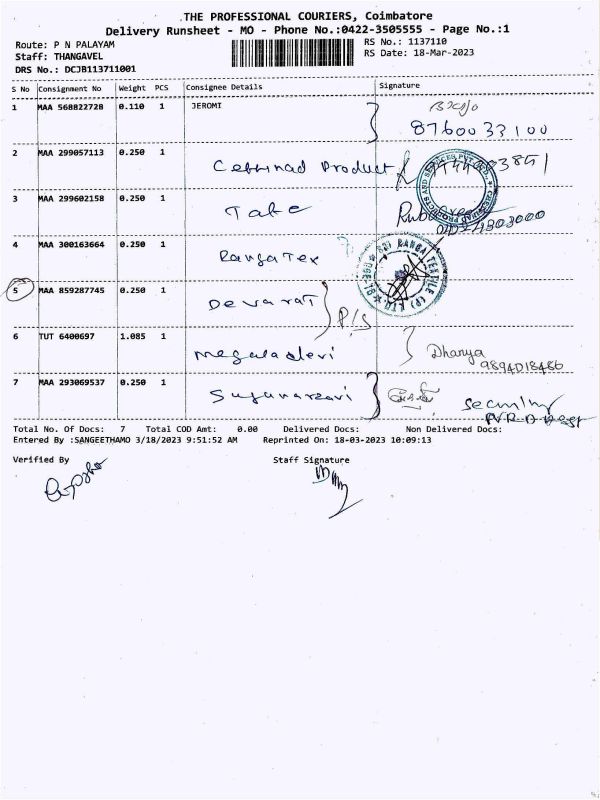 THE PROFESSIONAL COURIERS, Coimbatore
Delivery Runsheet - MO - Phone No.:0422-3505555 - Page No.:1
Route: P N PALAYAM
Staff: THANGAVEL
DRS No.: DCJB113711001
RS No.: 1137110
RS Date: 18-Mar-2023
S No Consignment No Weight PCS Consignee Details Signature
1 MAA 568822728 0.110 1 JEROMI
8760033100
2 MAA 299057113 0.250 1
Product
3 MAA 299602158 0.250 1
4 MAA 300163664 0.250 1 Ranga Tex
SRI RANGA TEXTILE (P) LTD
5 MAA 859287745 0.250 1 P/S
6 TUT 6400697 1.085 1 Megaladevi Dhanya
9894018486
7 MAA 293069537 0.250 1
Total No. Of Docs: 7 Total COD Amt: 0.00 Delivered Docs: Non Delivered Docs:
Entered By :SANGEETHAMO 3/18/2023 9:51:52 AM Reprinted On: 18-03-2023 10:09:13
Verified By Staff Signature